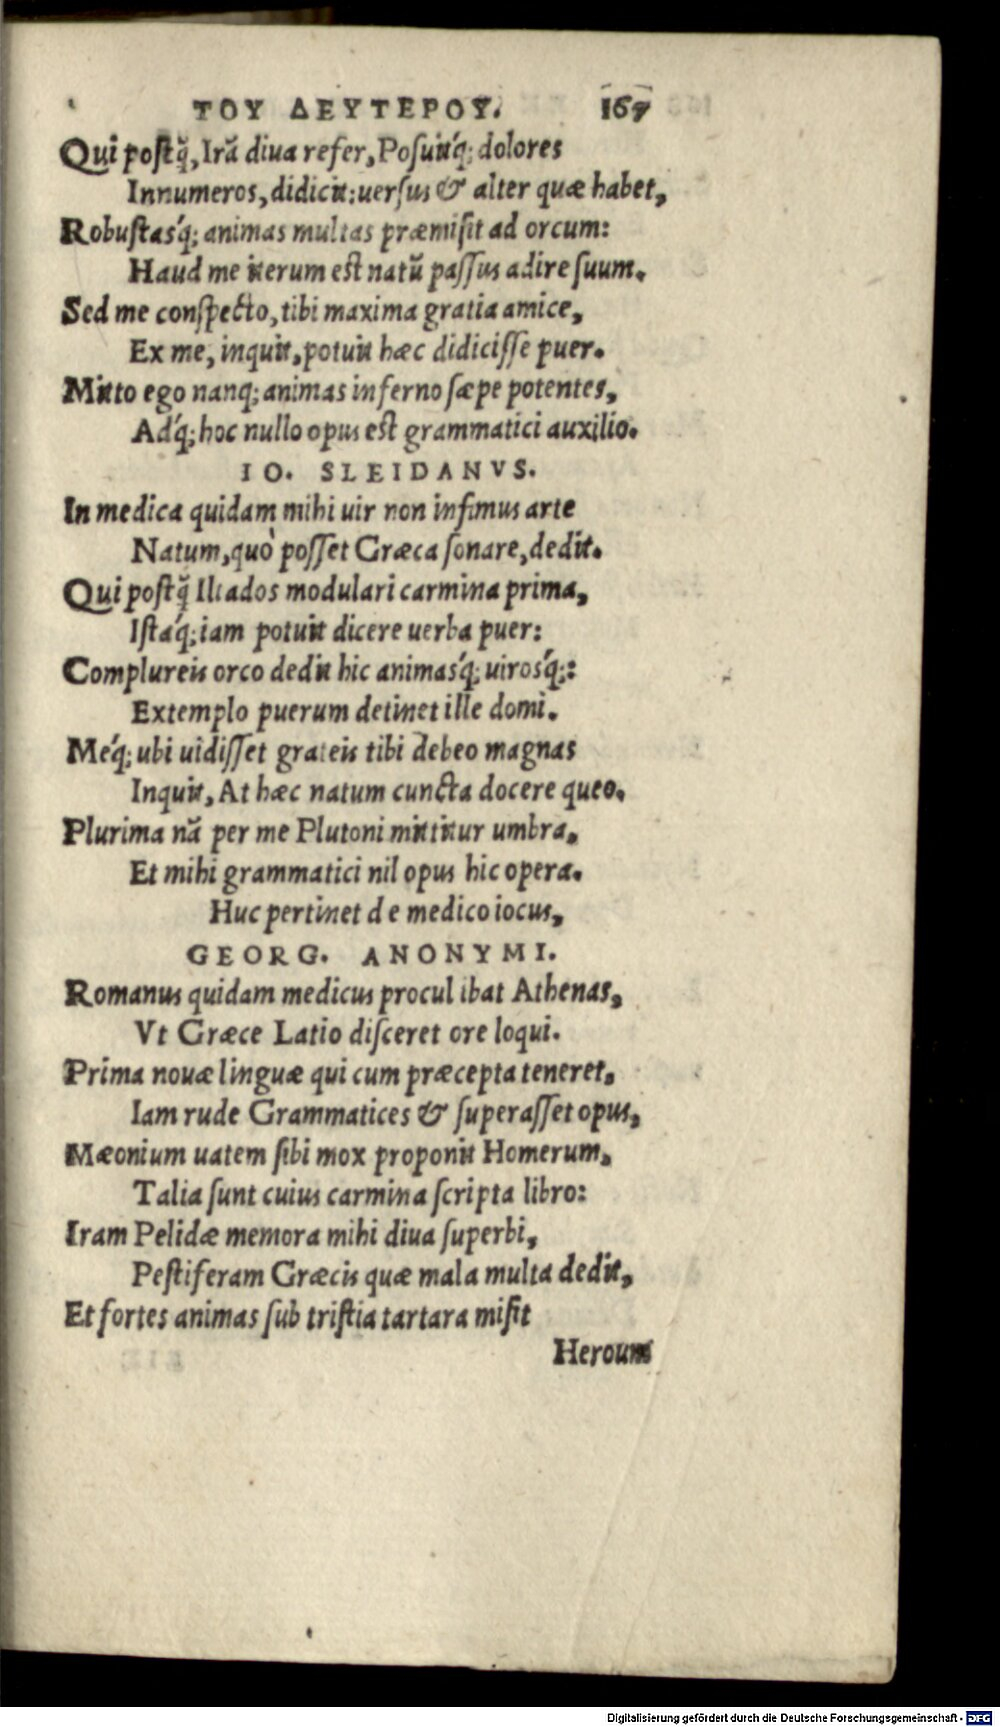 ΤΟΥ ΔΕΥΤΕΡΟΥ. 167
Qui postq̃, Irã diua refer, Posuitq́; dolores
Innumeros, didicit: uersus & alter quæ habet,
Robustasq́; animas multas præmisit ad orcum:
Haud me iterum est natũ passus adire suum.
Sed me conspecto, tibi maxima gratia amice,
Ex me, inquit, potuit hæc didicisse puer.
Mitto ego nanq; animas inferno sæpe potentes,
Adq́; hoc nullo opus est grammatici auxilio.
IO. SLEIDANVS.
In medica quidam mihi uir non infimus arte
Natum, quò posset Græca sonare, dedit.
Qui postq̃ Iliados modulari carmina prima,
Istaq́; iam potuit dicere uerba puer:
Complureis orco dedit hic animasq́; uirosq́;:
Extemplo puerum detinet ille domi.
Meq́; ubi uidisset grateis tibi debeo magnas
Inquit, At hæc natum cuncta docere queo.
Plurima nã per me Plutoni mittitur umbra,
Et mihi grammatici nil opus hic opera.
Huc pertinet de medico iocus,
GEORG. ANONYMI.
Romanus quidam medicus procul ibat Athenas,
Vt Græce Latio disceret ore loqui.
Prima nouæ linguæ qui cum præcepta teneret,
Iam rude Grammatices & superasset opus,
Mæonium uatem sibi mox proponit Homerum,
Talia sunt cuius carmina scripta libro:
Iram Pelidæ memora mihi diua superbi,
Pestiferam Græcis quæ mala multa dedit,
Et fortes animas sub tristia tartara misit
Heroum
Digitalisierung gefördert durch die Deutsche Forschungsgemeinschaft - DFG